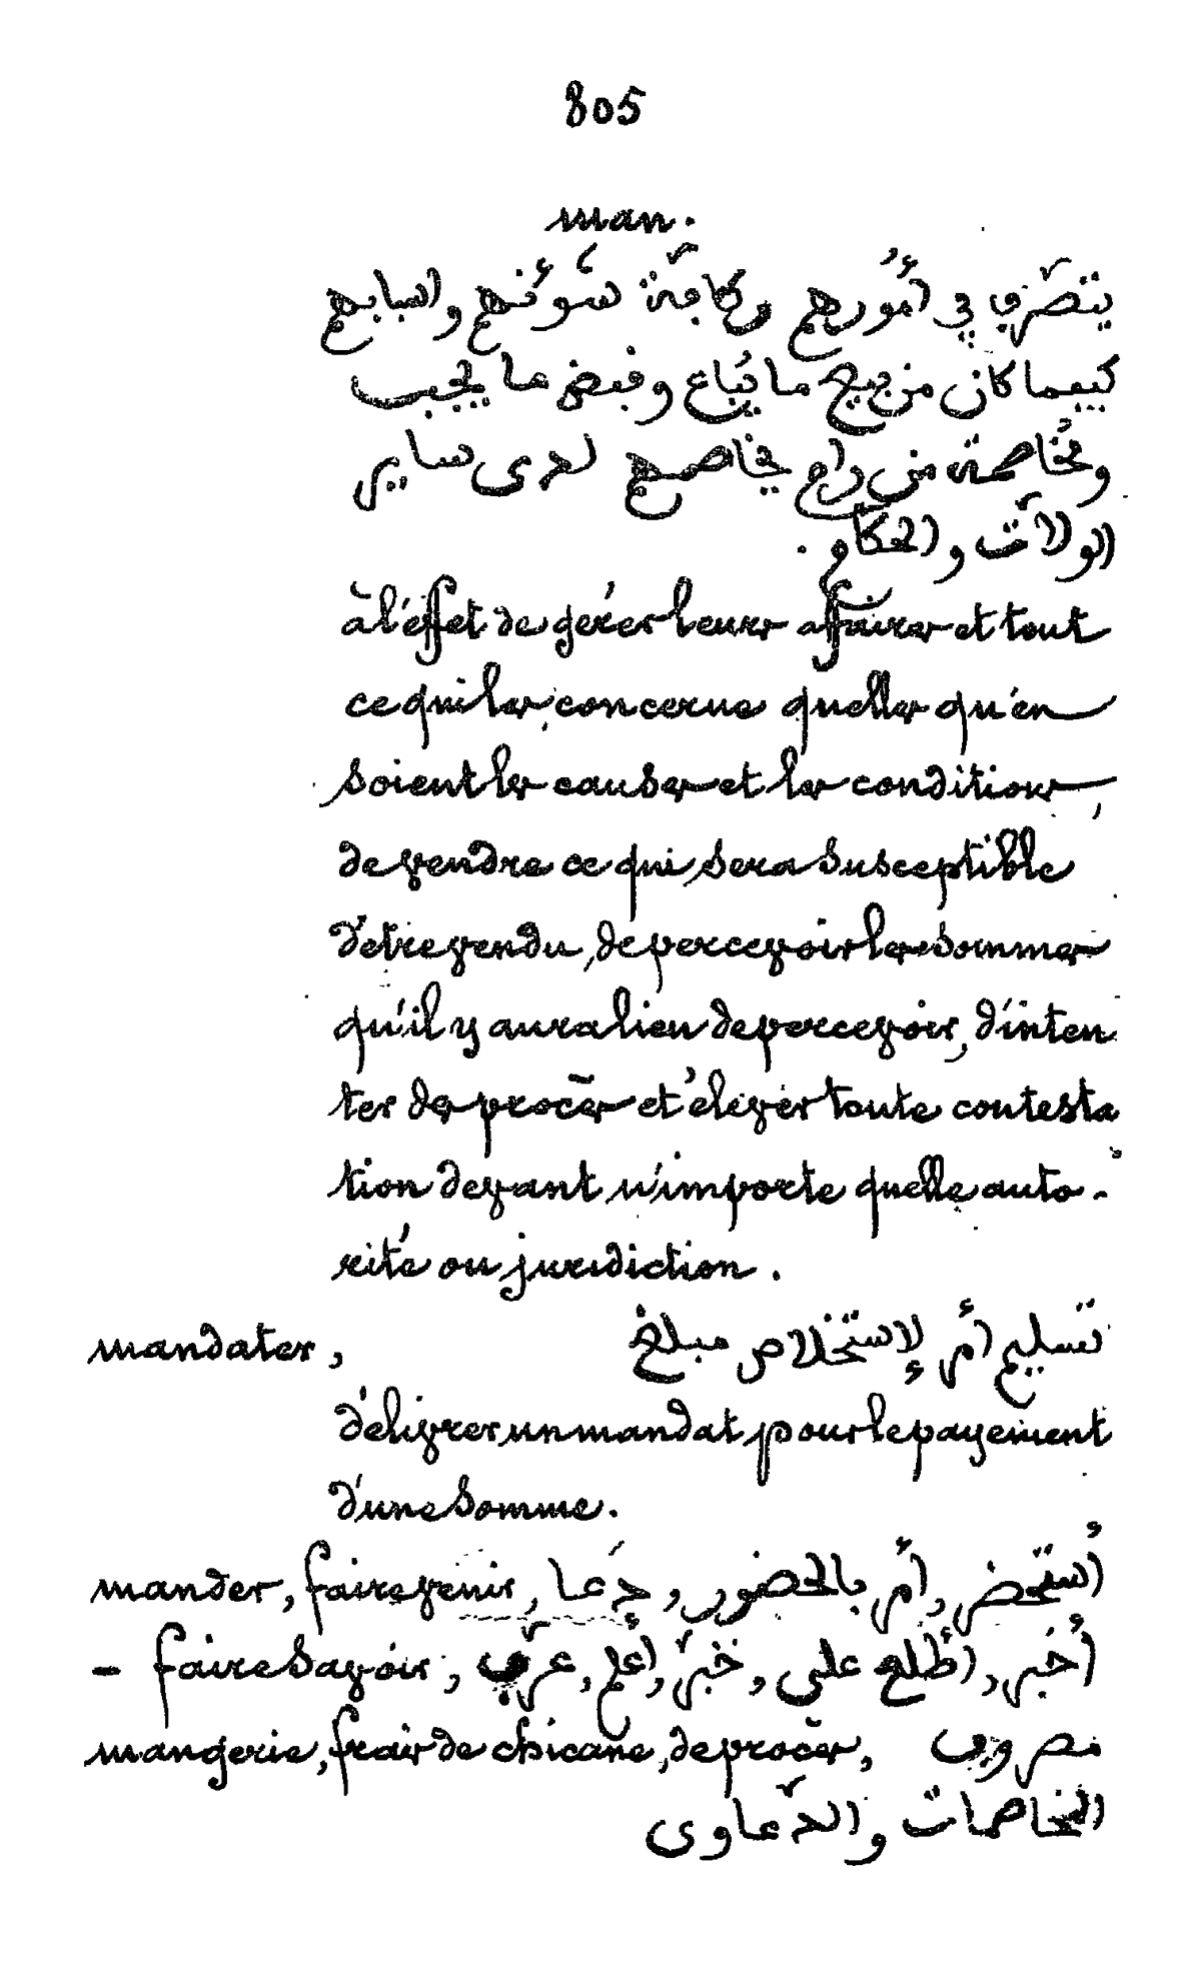 805
man.
يتصرّف في أُمورهم وكافّة شَؤنهم واسبابهم
كيفما كان من بيع ما يُباع وقبض ما يجب
ومُخاصمة من رام يخاصمهم لدى ساير
الولاّت والحكّام.
à l'éffet de gérer leurs affaires et tout
ce qui les concerne quelles qu'en
soient les causes et les conditions,
de vendre ce qui sera susceptible
d'etre vendu, de percevoir les sommes
qu'il y aura lieu de percevoir, d'inten
ter des procès et élever toute contesta
tion devant n'importe quelle auto-
rité ou juridiction.
mandater, تسليم أمر لإستخلاص مبلغ
délivrer un mandat pour le payement
d'une somme.
mander, faire venir, أُستحضر, أمر بالحضور, دَعا
– faire savoir, أُخبر, اطّلع على, خبّر, اعلم, عرّف
mangerie, frais de chicane, de procès, مصروف
المخاصمات والدّعاوى